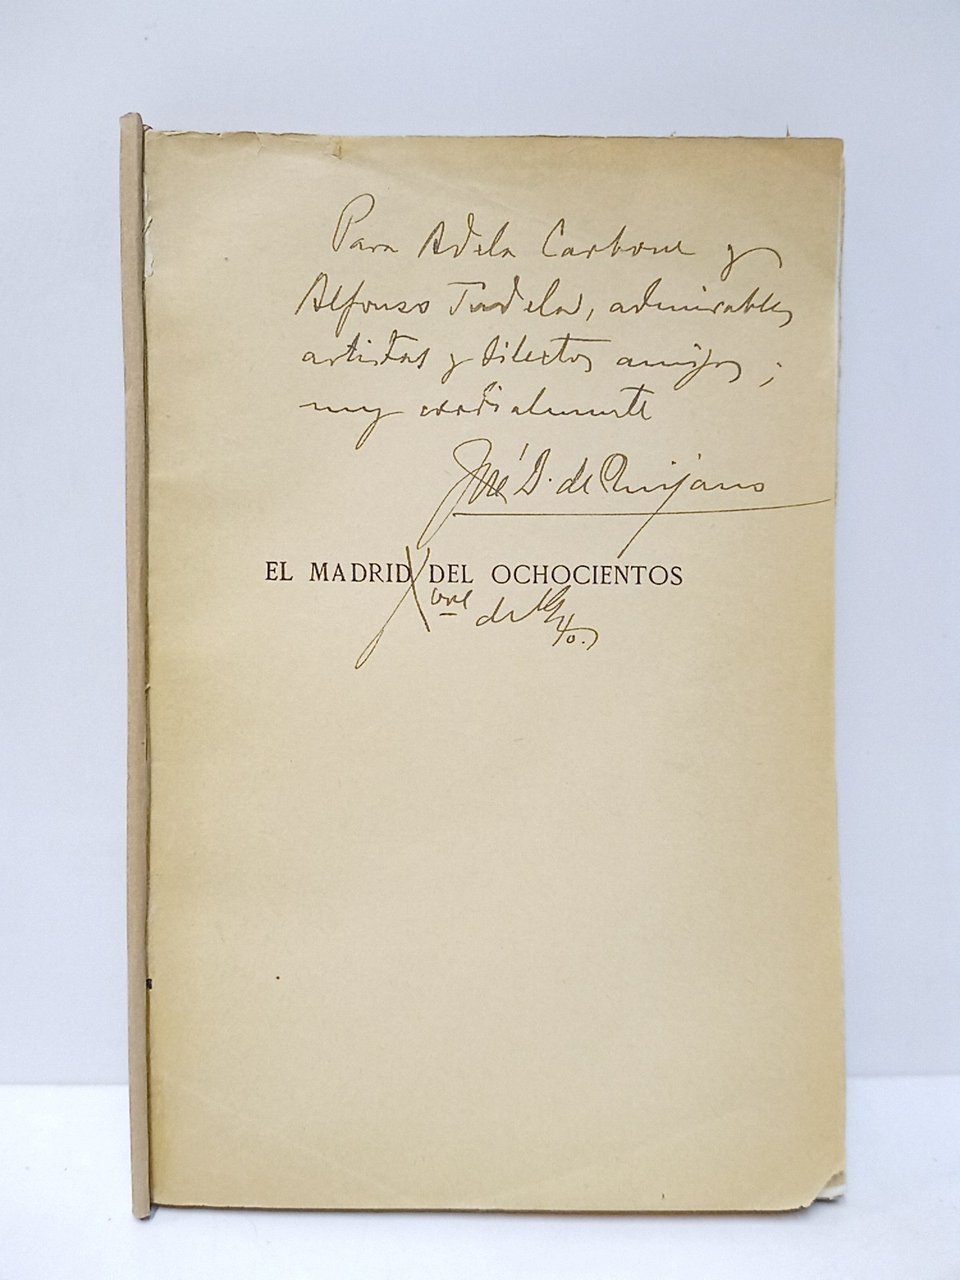 Para Adela Carbone y
Alfonso Tudela, admirables
artistas y dilectos amigos;
muy cordialmente
José D. de Quijano
EL MADRID DEL OCHOCIENTOS
Xbre de 1940.